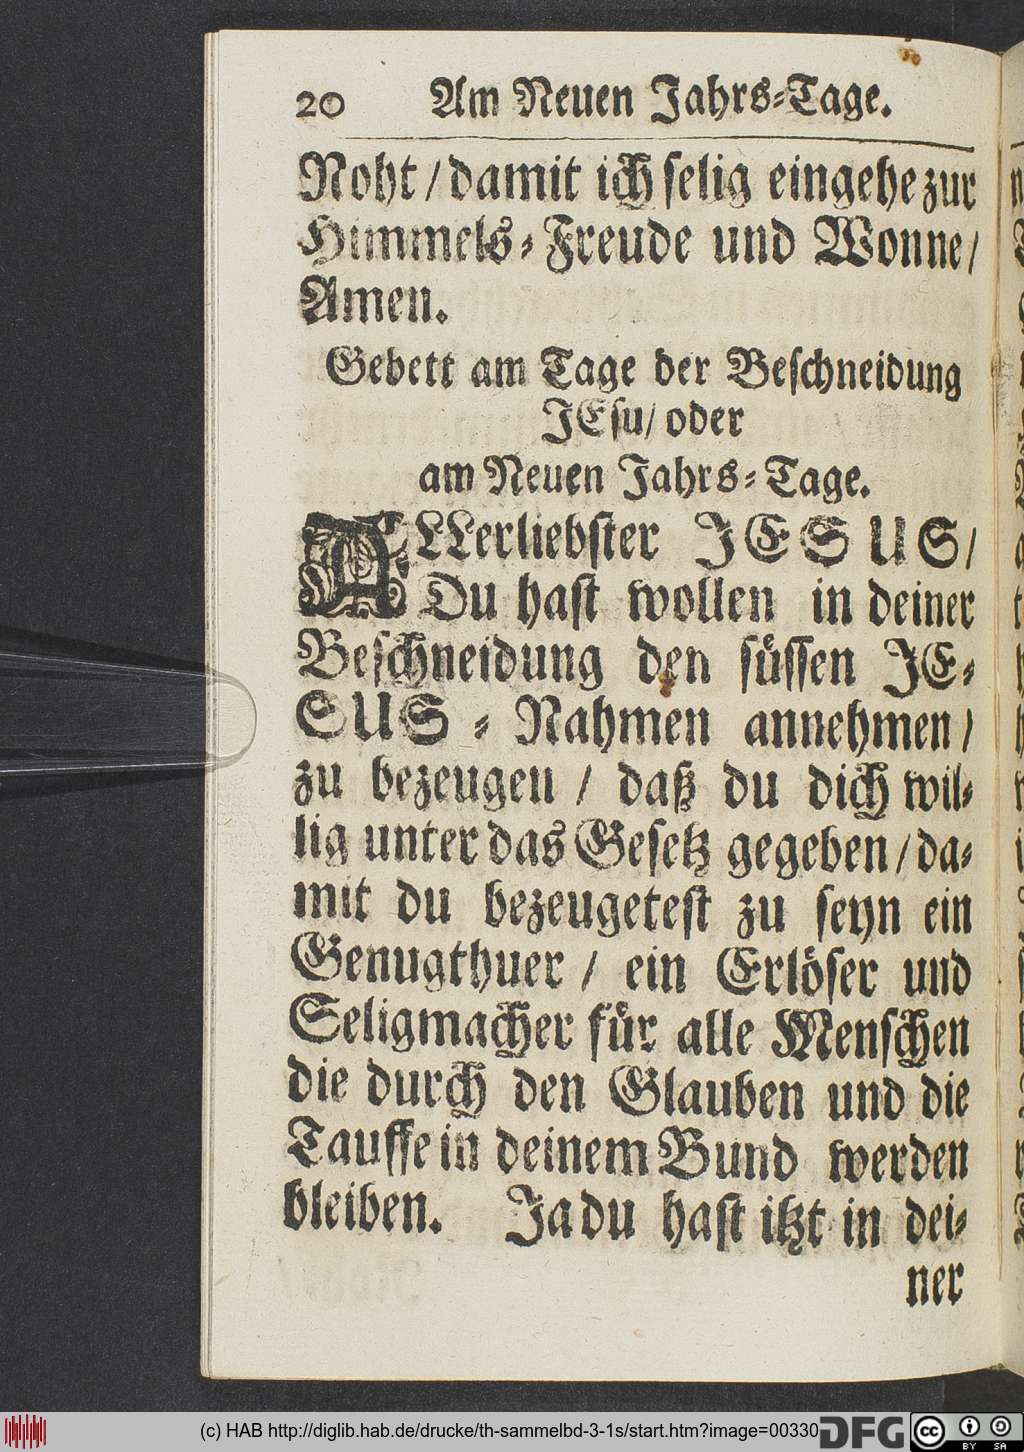 20 Am Neuen Jahrs-Tage.
Noht / damit ich selig eingehe zur
Himmels-Freude und Wonne /
Amen.
Gebett am Tage der Beschneidung
JEsu / oder
am Neuen Jahrs-Tage.
ALLerliebster JESUS /
Du hast wollen in deiner
Beschneidung den süssen JE-
SUS - Nahmen annehmen /
zu bezeugen / daß du dich wil-
lig unter das Gesetz gegeben / da-
mit du bezeugetest zu seyn ein
Genugthuer / ein Erlöser und
Seligmacher für alle Menschen
die durch den Glauben und die
Tauffe in deinem Bund werden
bleiben. Ja du hast itzt in dei-
ner
(c) HAB http://diglib.hab.de/drucke/th-sammelbd-3-1s/start.htm?image=00330
DFG
cc BY SA